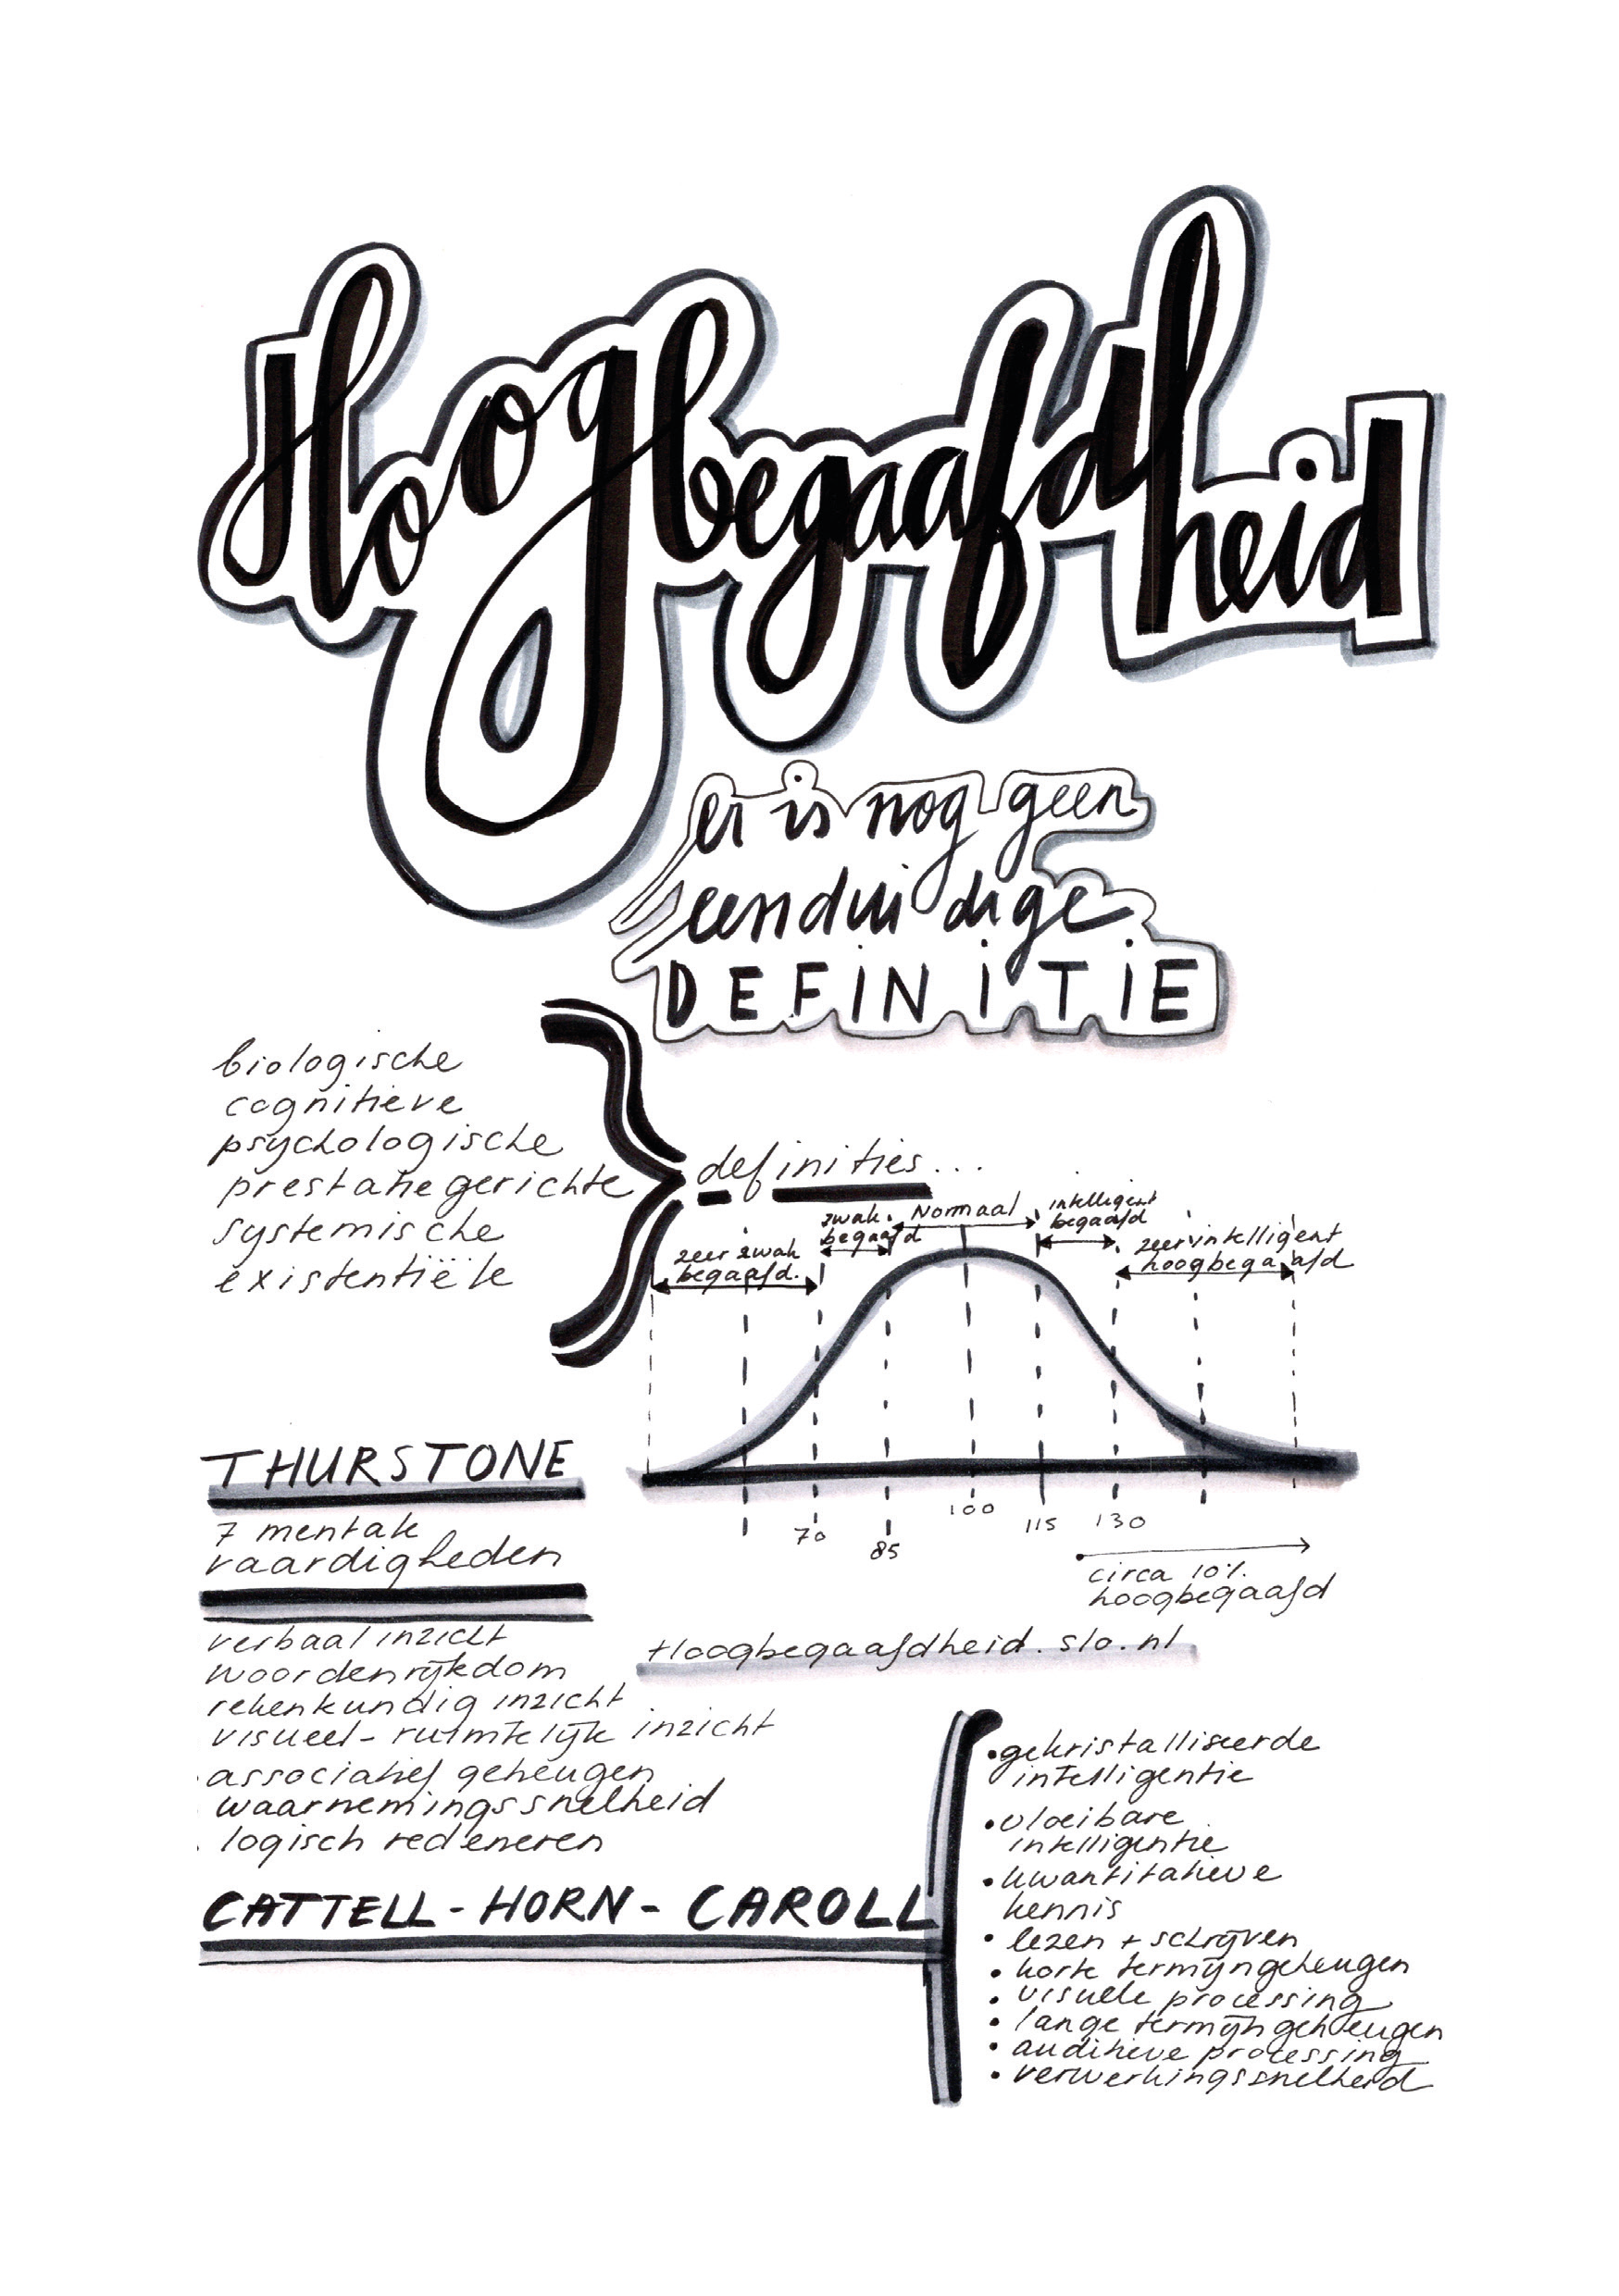 Hoogbegaafdheid
er is nog geen
eenduidige
DEFINITIE
biologische
cognitieve
psychologische
prestatiegerichte
systemische
existentiële
definities...
zeer zwak
begaafd.
zwak
begaafd
Normaal
intelligent
begaafd
zeer intelligent
hoogbegaafd
70
85
100
115
130
circa 10%
hoogbegaafd
Hoogbegaafdheid.slo.nl
THURSTONE
7 mentale
vaardigheden
verbaal inzicht
woordenrijkdom
rekenkundig inzicht
visueel-ruimtelijk inzicht
associatief geheugen
waarnemingssnelheid
logisch redeneren
CATTELL-HORN-CAROLL
• gekristalliseerde
intelligentie
• vloeibare
intelligentie
• kwantitatieve
kennis
• lezen + schrijven
• korte termijngeheugen
• visuele processing
• lange termijngeheugen
• auditieve processing
• verwerkingssnelheid